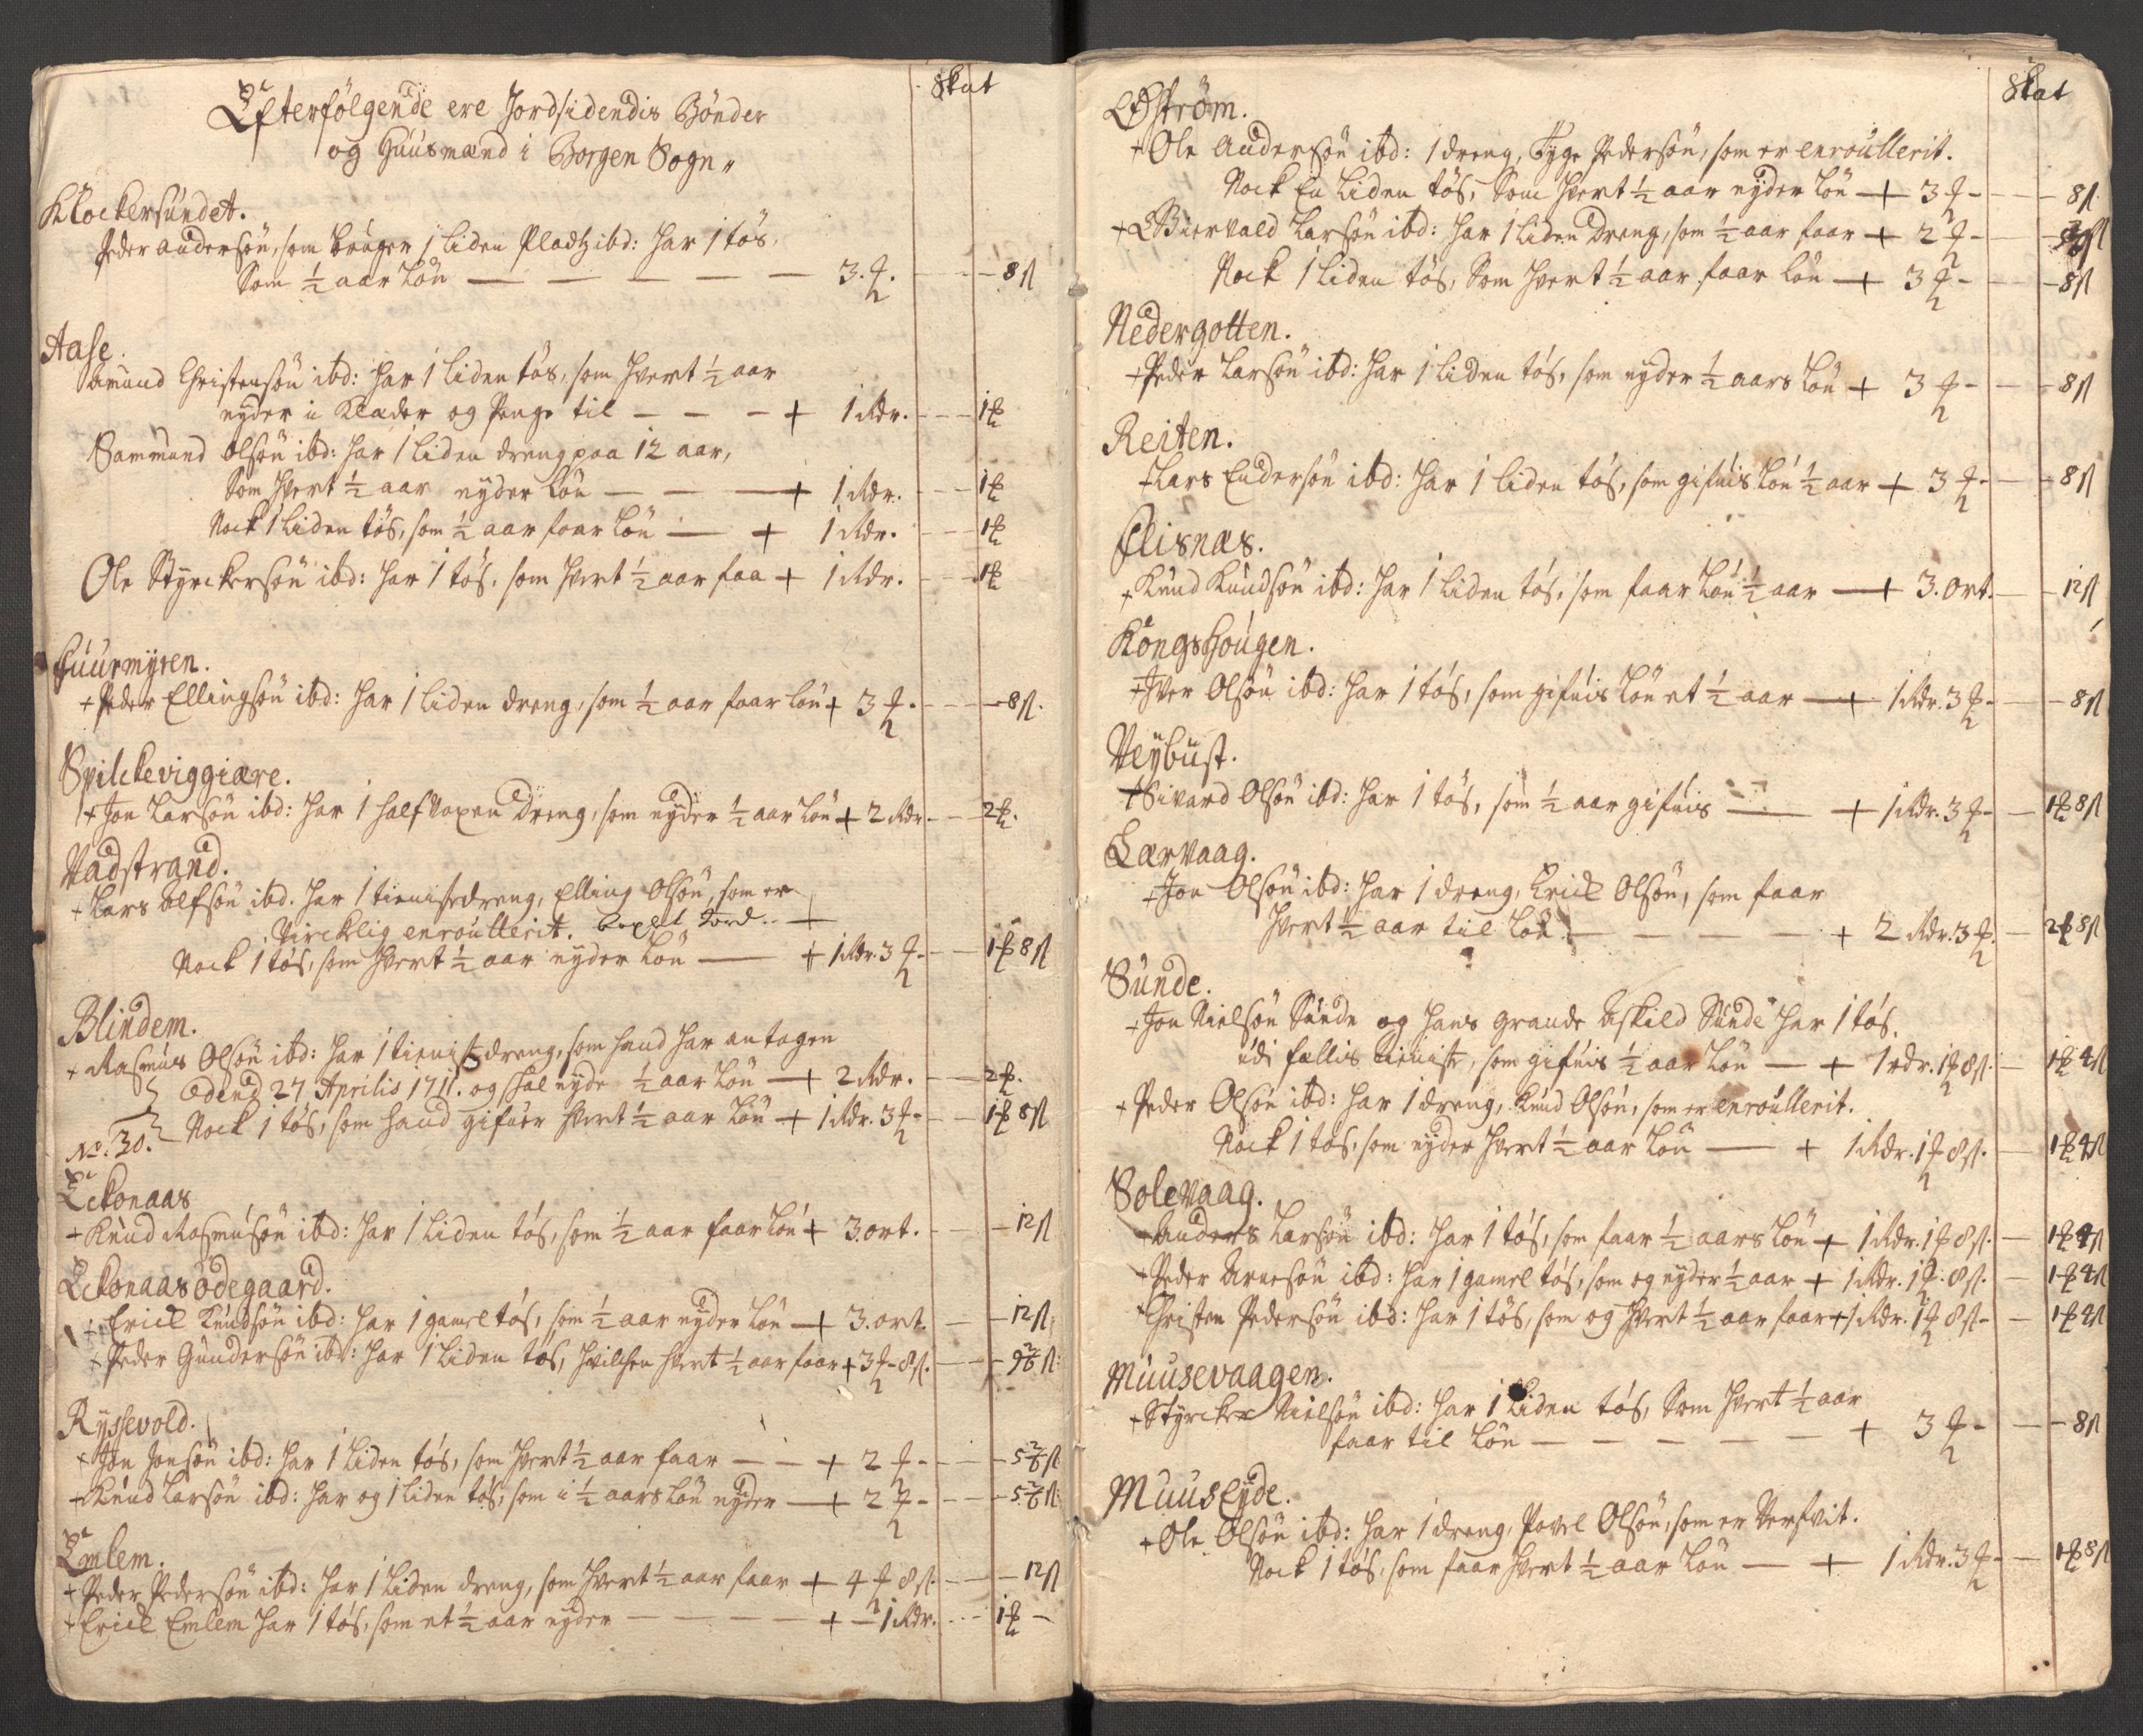 Skat
Efterfölgende ere Jordsidendis Bönder
og Huusmænd i Borgen Sogn
Klockersundet.
Peder andersön, som bruger 1 liden Pladtz ibd: har 1 tös,
Som ½ aar Lön — — — — — 3. ₰. - - - 8 ß
Aase.
Amund Christensön ibd: har 1 liden tös, som hvert ½ aar
nyder i Klæder og Penge til — — — + 1 Rdr. - - - 1 ₰
Sammund Olsön ibd: har 1 liden dreng paa 12 aar,
Som hvert ½ aar nyder Lön — — — + 1 Rdr. - - - 1 ₰
Nock 1 liden tös, som ½ aar faar Lön — + 1 Rdr. - - - 1 ₰
Ole Styrckersön ibd: har 1 tös, som hvert ½ aar faa + 1 Rdr. - - - 1 ₰
Fuurmyren.
+ Peder Ellingsön ibd: har 1 liden dreng, som ½ aar faar Lön + 3 ₰. - - - 8 ß.
Spilckeviggiære.
+ Jon Larsön ibd: har 1 half Voxen Dreng, som nyder ½ aar Lön + 2 Rdr - - 2 ₰.
Vadstrand.
+ Lars Olfsön ibd. har 1 tienistedreng, Elling Olsön, som er
Vircklig enroullerit. — +
Nock 1 tös, som hvert ½ aar nyder Lön — + 1 Rdr. 3 ₰ - - 1 ₰ 8 ß
Blindem.
+ Rasmus Olsön ibd: har 1 tienistedreng, som hand har antagen
den 27 Aprilis 1711. og skal nyde ½ aar Lön — + 2 Rdr. - - 2 ₰.
No. 30. Nock 1 tös, som hand gifuer hvert ½ aar Lön + 1 Rdr. 3 ₰ - - 1 ₰ 8 ß
Eckonaas
+ Knud Rasmusön ibd: har 1 liden tös, som ½ aar faar Lön + 3. ort. - - 12 ß
Eckonaasödegaard.
+ Erick Knudsön ibd: har 1 gamel tös, som ½ aar nyder Lön — + 3. ort. — - 12 ß
+ Peder Gundersön ibd: har 1 liden tös, hvilchen hvert ½ aar faar + 3 ₰ - 8 ß. - - 9⅔ ß.
Ryssevold.
+ Jon Jonsön ibd: har 1 liden tös, som hvert ½ aar faar — — + 2 ₰ - - - 5⅔ ß
+ Knud Larsön ibd: har og 1 liden tös, som i ½ aars Lön nyder — + 2 ₰ - - - 5⅔ ß
Emlem.
+ Peder Pedersön ibd: har 1 liden dreng, som hvert ½ aar faar + 4 ₰ 8 ß. - - 12 ß
+ Erick Emlem har 1 tös, som et ½ aar nyder — — — — + — 1 Rdr. - - 1 ₰ -
Skat
Öström.
+ Ole Andersön ibd: 1 dreng, Tyge Pedersön, som er enroullerit.
Nock En liden tös, Som hvert ½ aar nyder Lön — + 3 ₰ - - - 8 ß
+ Biervald Larsön ibd: har 1 liden Dreng, som ½ aar faar + 2 ₰ - -
Nock 1 liden tös, Som hvert ½ aar faar Lön — + 3 ₰ - - - 8 ß
Nedergotten.
+ Peder Larsön ibd: har 1 liden tös, som nyder ½ aars Lön + 3 ₰ - - - 8 ß
Reiten.
+ Lars Endersön ibd: har 1 liden tös, som gifuis Lön ½ aar + 3 ₰ - - - 8 ß
Flisnæs.
+ Knud Knudsön ibd: har 1 liden tös, som faar Lön ½ aar — + 3. ort. - - 12 ß
Kongshougen.
+ Iver Olsön ibd: har 1 tös, som gifuis Lön et ½ aar — + 1 Rdr. 3 ₰ - - - 8 ß
Veybust.
+ Sivard Olsön ibd: har 1 tös, som ½ aar gifuis — + 1 Rdr. 3 ₰ - - 1 ₰ 8 ß
Lærvaag.
+ Jon Olsön ibd: har 1 dreng, Erick Olsön, som faar
hvert ½ aar til Lön — — — — + 2 Rdr. 3 ₰. - 2 ₰ 8 ß
Sunde.
+ Jon Nielsön Sunde og hans grande Askild Sunde har 1 tös,
udi fællis tieniste, som gifuis ½ aar Lön — + 1 rdr. 1 ₰ 8 ß. - 1 ₰ 4 ß
+ Peder Olsön ibd: har 1 dreng, Knud Olsön, som er enroullerit.
Nock 1 tös, som nyder hvert ½ aar Lön — + 1 Rdr. 1 ₰ 8 ß. — 1 ₰ 4 ß
Solevaag.
+ Anders Larsön ibd: har 1 tös, som faar ½ aars Lön + 1 Rdr. 1 ₰ 8 ß. — 1 ₰ 4 ß
+ Peder Arnesön ibd: har 1 gamel tös, som og nyder ½ aar + 1 Rdr. 1 ₰. 8 ß. — 1 ₰ 4 ß
+ Christen Pedersön ibd: har 1 tös, som og hvert ½ aar faar + 1 Rdr. 1 ₰ 8 ß - — 1 ₰ 4 ß
Muusevaagen.
+ Styrcker Nielsön ibd: har 1 liden tös, Som hvert ½ aar
faar til Lön — — — — — + 3 ₰ - — - 8 ß
Muuseyde.
+ Ole Olsön ibd: har 1 dreng, Povel Olsön, som er
Nock 1 tös, som faar hvert ½ aar Lön — + 1 Rdr. 3 ₰ - — 1 ₰ 8 ß